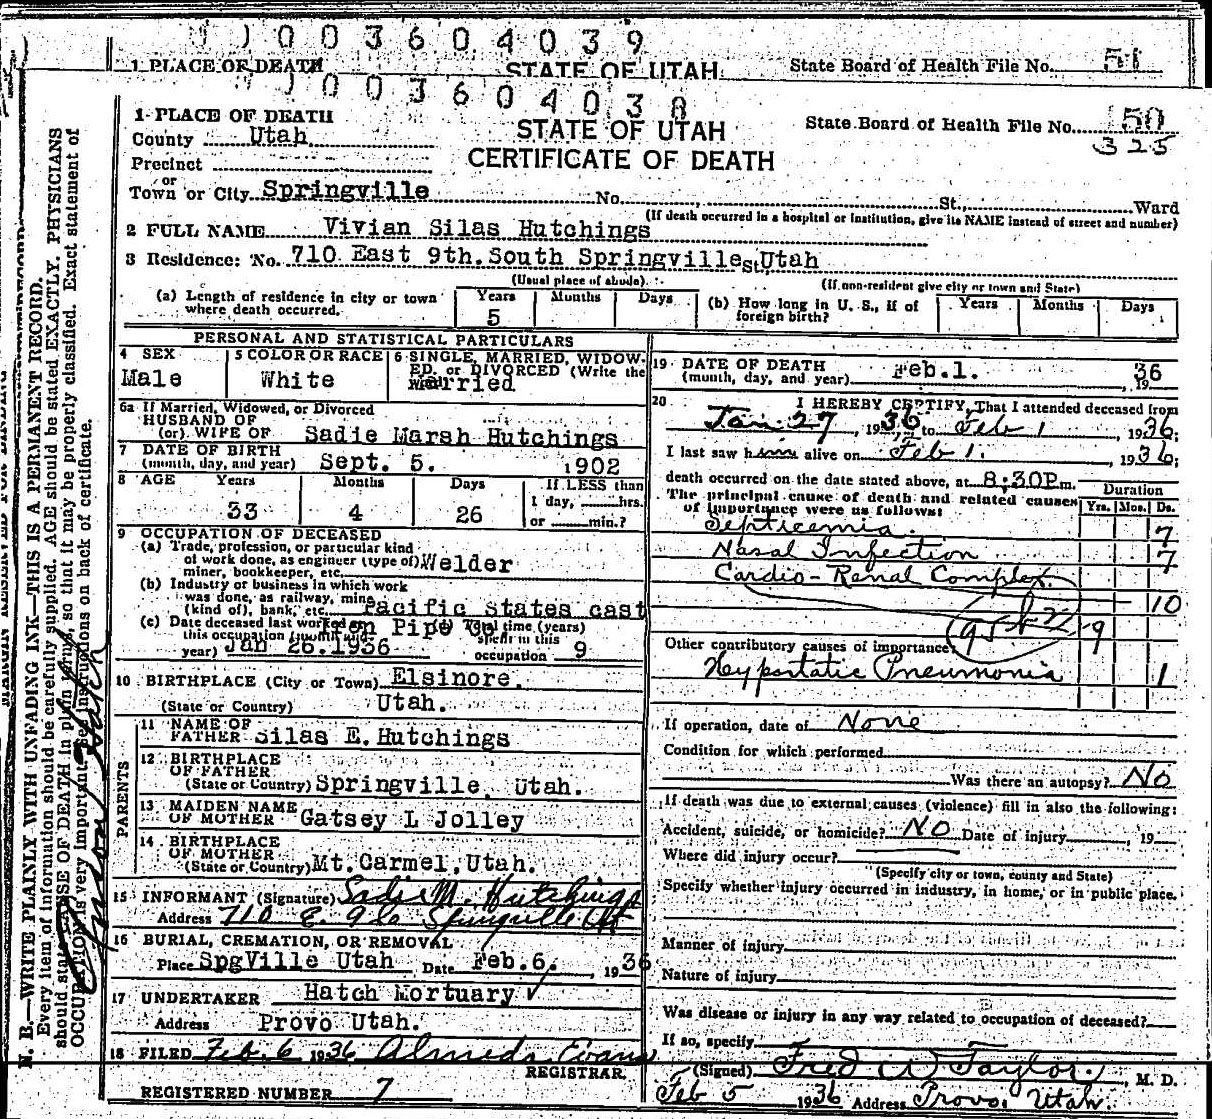 0036 0 4 0 3 9
1 PLACE OF DEATH STATE OF UTAH State Board of Health File No. 51
0036 0 4 0 3 8
1 PLACE OF DEATH
County Utah
STATE OF UTAH
State Board of Health File No. 50
325
Precinct
CERTIFICATE OF DEATH
or
Town or City Springville No. St., Ward
(If death occurred in a hospital or institution, give its NAME instead of street and number)
2 FULL NAME Vivian Silas Hutchings
3 Residence: No. 710 East 9th. South Springville St. Utah
(Usual place of abode) (If non-resident give city or town and State)
(a) Length of residence in city or town where death occurred. Years 5 Months Days (b) How long in U. S., if of foreign birth? Years Months Days
PERSONAL AND STATISTICAL PARTICULARS
4 SEX Male
5 COLOR OR RACE White
6 SINGLE, MARRIED, WIDOWED, or DIVORCED (Write the
Married
6a If Married, Widowed, or Divorced
HUSBAND OF
(or) WIFE OF Sadie Marsh Hutchings
7 DATE OF BIRTH
(month, day, and year) Sept. 5. 1902
8 AGE Years 33 Months 4 Days 26 If LESS than 1 day, hrs. or min.?
9 OCCUPATION OF DECEASED
(a) Trade, profession, or particular kind
of work done, as engineer (type of) Welder
miner, bookkeeper, etc.
(b) Industry or business in which work
was done, as railway, mine
(kind of), bank, etc. Pacific States cast
Iron Pipe Co.
(c) Date deceased last worked at
this occupation (month and
year) Jan 26. 1936
(d) Total time (years)
spent in this
occupation 9
10 BIRTHPLACE (City or Town) Elsinore.
(State or Country) Utah.
PARENTS
11 NAME OF
FATHER Silas E. Hutchings
12 BIRTHPLACE
OF FATHER
(State or Country) Springville, Utah.
13 MAIDEN NAME
OF MOTHER Gatsey L Jolley
14 BIRTHPLACE
OF MOTHER
(State or Country) Mt. Carmel, Utah.
15 INFORMANT (Signature) Sadie M. Hutchings
Address 710 E. 9 So Springville Ut
16 BURIAL, CREMATION, OR REMOVAL
Place SpgVille Utah Date Feb. 6. 1936
17 UNDERTAKER Hatch Mortuary
Address Provo Utah.
18 FILED Feb. 6 1936 Almeda Evans
REGISTRAR
REGISTERED NUMBER 7
19 DATE OF DEATH
(month, day, and year) Feb. 1. , 1936
20 I HEREBY CERTIFY, That I attended deceased from
Jan. 27, 1936, to Feb 1, 1936;
I last saw him alive on Feb 1., 1936;
death occurred on the date stated above, at 8:30P m.
The principal cause of death and related causes
of importance were as follows:
Duration
Yrs. Mos. Ds.
Septicemia 7
Nasal Infection 7
Cardio-Renal Complex.
10
9
Other contributory causes of importance:
Hypostatic Pneumonia 1
If operation, date of None
Condition for which performed
Was there an autopsy? No
If death was due to external causes (violence) fill in also the following:
Accident, suicide, or homicide? NO Date of injury , 19
Where did injury occur?
(Specify city or town, county and State)
Specify whether injury occurred in industry, in home, or in public place.
Manner of injury
Nature of injury
Was disease or injury in any way related to occupation of deceased?
If so, specify
(Signed) Fred W Taylor, M. D.
Feb 5 1936 Address Provo, Utah.
N. B.—WRITE PLAINLY WITH UNFADING INK—THIS IS A PERMANENT RECORD.
Every item of information should be carefully supplied. AGE should be stated EXACTLY. PHYSICIANS
should state CAUSE OF DEATH in plain terms, so that it may be properly classified. Exact statement of
OCCUPATION is very important. See instructions on back of certificate.